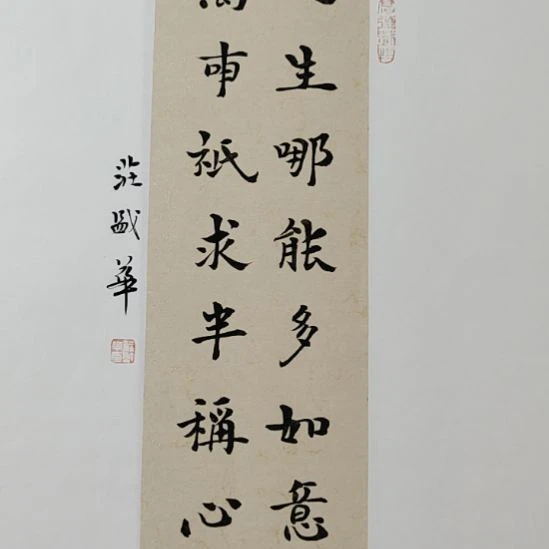 生哪能多如意
萬事祇求半稱心
莊華